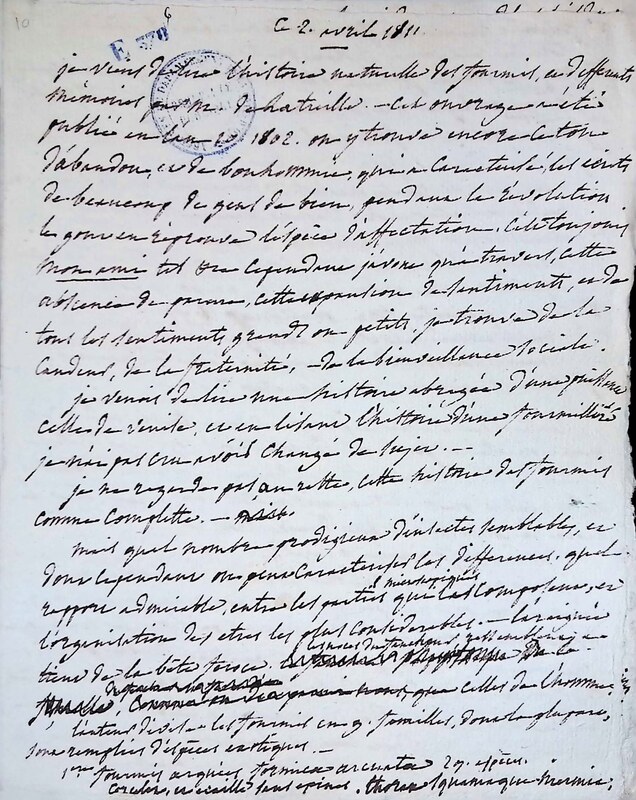 10
6
E 378
ce 2. avril 1811
je viens de lire l'histoire naturelle des fourmis, et differents
mémoires par mr. de latreille. — cet ouvrage a été
publié en l'an 1802. on y trouve encore ce ton
d'abandon, et de bonhommie, qui a caracterisé, les écrits
de beaucoup de gens de bien, pendant la révolution
le gout en réprouve l'éspèce d'affectation. c'est toujours
mon ami tel &ca cependant j'avoue qu'a travers, cette
absence de pureté, cette expansion de sentiments, et de
tous les sentiments grands ou petits, je trouve de la
candeur, de la fraternité, — de la bienveillance sociale.
je venois de lire une histoire abregée d'une
celle de venise, et en lisant l'histoire d'une fourmillière
je n'ai pas cru avoir changé de sujet. —
je ne regarde pas au reste, cette histoire des fourmis
comme complette. —
mais quel nombre prodigieux d'insectes semblables, et
dont cependant on peut caracteriser les differences. quel
rapport admirable, entre les parties microscopiques qui les composent, et
l'organisation des etres les plus considerables. — l'araignée
tient de la bête feroce.
que celles de l'homme,
l'auteur divise les fourmis en 9. familles, dont la plupart,
sont remplies d'éspèces exotiques. —
1ere fourmis arquées formicæ arcuatæ 29. espèces.
et écaille sans épines. thorax squamaque inermia,